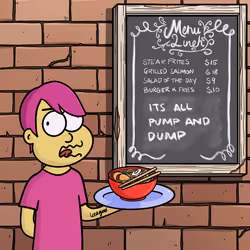 Menu
STEAK FRITES $15
GRILLED SALMON $18
SALAD OF THE DAY $9
BURGER & FRIES $10
ITS ALL
PUMP AND
DUMP